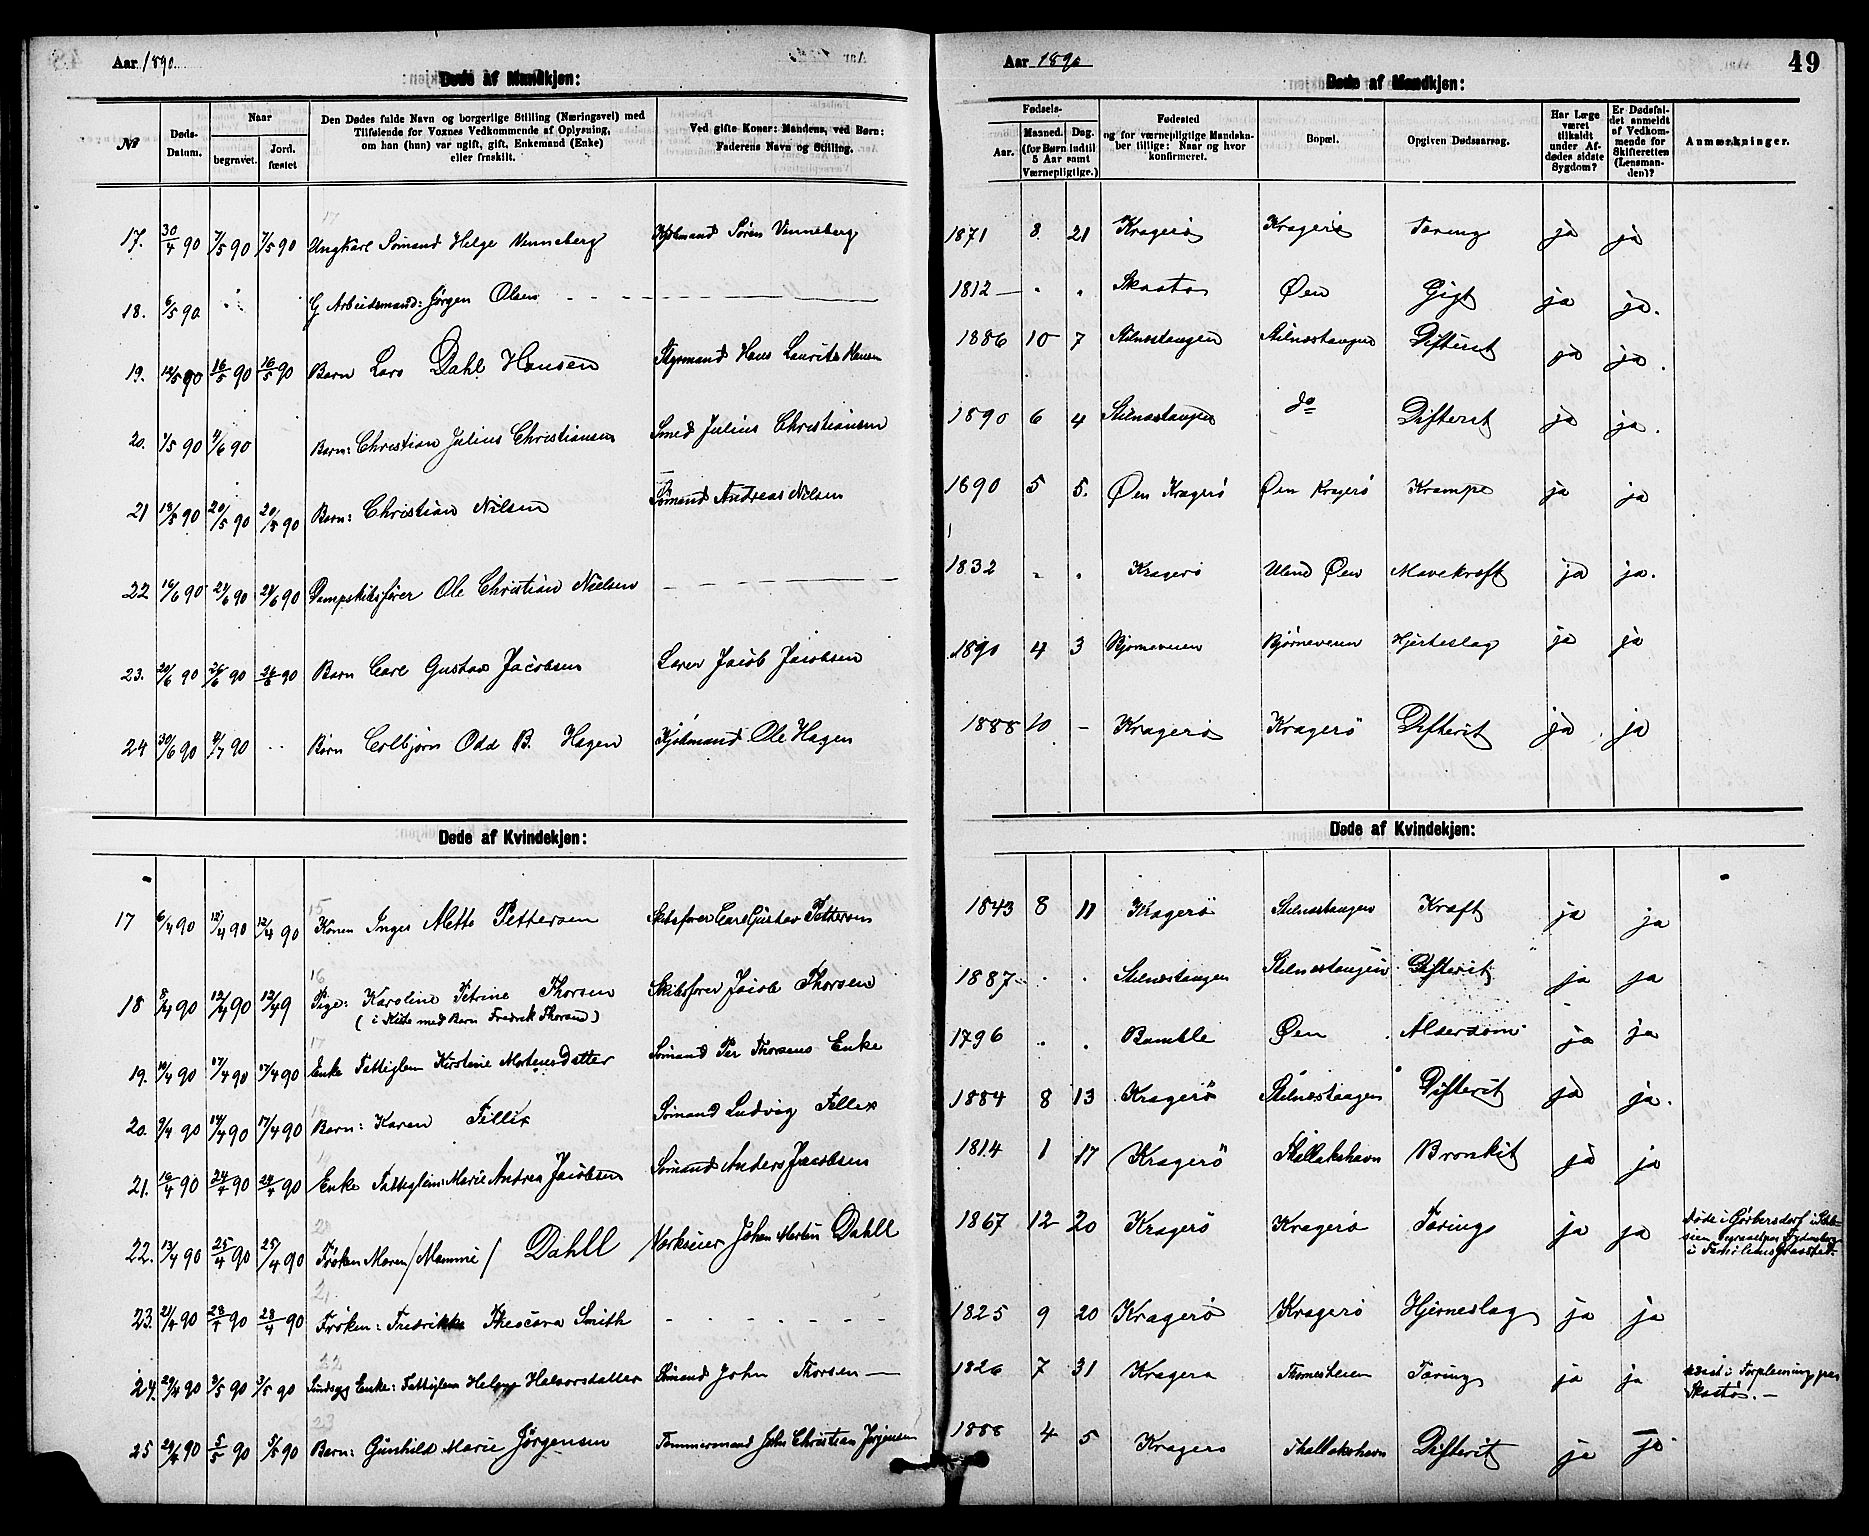 Aar 1890.
Døde af Mandkjøn:
No
Døds-Datum.
Naar
begravet.
Jord. fæstet
Den Dødes fulde Navn og borgerlige Stilling (Næringsvei) med
Tilføiende for Voxnes Vedkommende af Oplysning,
om han (hun) var ugift, gift, Enkemand (Enke)
eller fraskilt.
Ved gifte Koner: Mandens, ved Børn:
Faderens Navn og Stilling.
17. 30/4 90 7/5 90 7/5 90 Ungkarl Sømand Helge Venneberg Kjøbmand Søren Venneberg
18. 6/5 90 G Arbeidsmand: Jørgen Olsen
19. 12/5 90 16/5 90 16/5 90 Barn Lars Dahl Hansen Styrmand Hans Laurits Hansen
20. 1/5 90 4/6 90 Barn: Christian Julius Christiansen Smed Julius Christiansen
21 13/5 90 20/5 90 20/5 90 Barn: Christian Nilsen Sömand Andreas Nilsen
22 16/6 90 21/6 90 21/6 90 Dampskibsfører Ole Christian Nielsen
23. 20/6 90 26/6 90 26/6 90 Barn Carl Gustav Jacobsen Jacob Jacobsen
24 30/6 90 4/7 90 Barn Colbjørn Odd B. Hagen Kjøbmand Ole Hagen
Døde af Kvindekjøn:
17 6/4 90 12/4 90 12/4 90 Konen Inger Mette Pettersen Skibsfører Carl Gustav Pettersen
18 8/4 90 12/4 90 12/4 9 Pige: Karoline Petrine Thorsen Skibsfører Jacob Thorsen
(i Kiste med Barn Fredrik Thorsen)
19. 10/4 90 17/4 90 17/4 90 Enke Fattiglem Kirstine Mortensdatter Sömand Per Thorsens Enke
20. 9/4 90 17/4 90 17/4 90 Barn: Karen Fillix Sömand Ludvig Fillix
21. 16/4 90 24/4 90 24/4 90 Enke Fattiglem: Marie Andrea Jacobsen Sömand Anders Jacobsen
22. 13/4 90 25/4 90 25/4 90 Frøken Maren /Mammi/ Dahll Værkseier Johan Martin Dahll
23. 21/4 90 28/4 90 28/4 90 Frøken: Fredrikke Theodora Smith
24. 29/4 90 3/5 90 3/5 90 Sindsyg Enke: Fattiglem Helene Halvorsdatter Sömand John Thorsen
25 29/4 90 5/5 90 5/5 90 Barn: Gunhild Marie Jørgensen Tømmermand John Christian Jørgensen
Aar 1890
49
Døde af Mandkjøn:
Fødsels-
Aar.
Maaned. Dag.
(for Børn indtil
5 Aar samt
Værnepligtige.)
Fødested
og for værnepligtige Mandskaber tillige: Naar og hvor
konfirmeret.
Bopæl.
Opgiven Dødsaarsag.
Har Læge
været
tilkaldt
under Afdødes sidste
Sygdom?
Er Dødsfaldet anmeldt
af Vedkommende for
Skifteretten
(Lensmanden)?
Anmærkninger.
1871 8 21 Kragerö Kragerö Tæring ja ja
1812 Skaatø Øen Gigt ja ja.
1886 10 7 Stilnæstangen Stilnæstangen Difterit ja ja.
1890 6 4 Stilnæstangen do Difterit ja ja.
1890 5 5. Øen Kragerö Øen Kragerö Krampe ja ja
1832 Kragerö Øen Mavekræft ja ja.
1890 4 3 Bjørneveien Bjørneveien Hjerteslag ja ja
1888 10 - Kragerö Kragerö Difterit ja ja
Døde af Kvindekjøn:
1843 8 11 Kragerö Stilnæstangen Kræft ja ja
1887 Stilnæstangen Stilnæstangen Difterit ja ja
1796 Bamble Øen Alderdom ja ja
1884 8 13 Kragerö Stilnæstangen Difterit ja ja.
1814 1 17 Kragerö Thallakshavn Bronkit ja ja
1867 12 20 Kragerö Kragerö Tæring ja ja Døde i Görbersdorf i Schlesien
i Familiens Gravsted.
1825 9 20 Kragerö Kragerö Hjerneslag ja ja
1826 7 31 Kragerø Tæring ja ja i Forpleining paa
Skaatø.
1888 4 5 Kragerø Thallakshavn Difterit ja ja